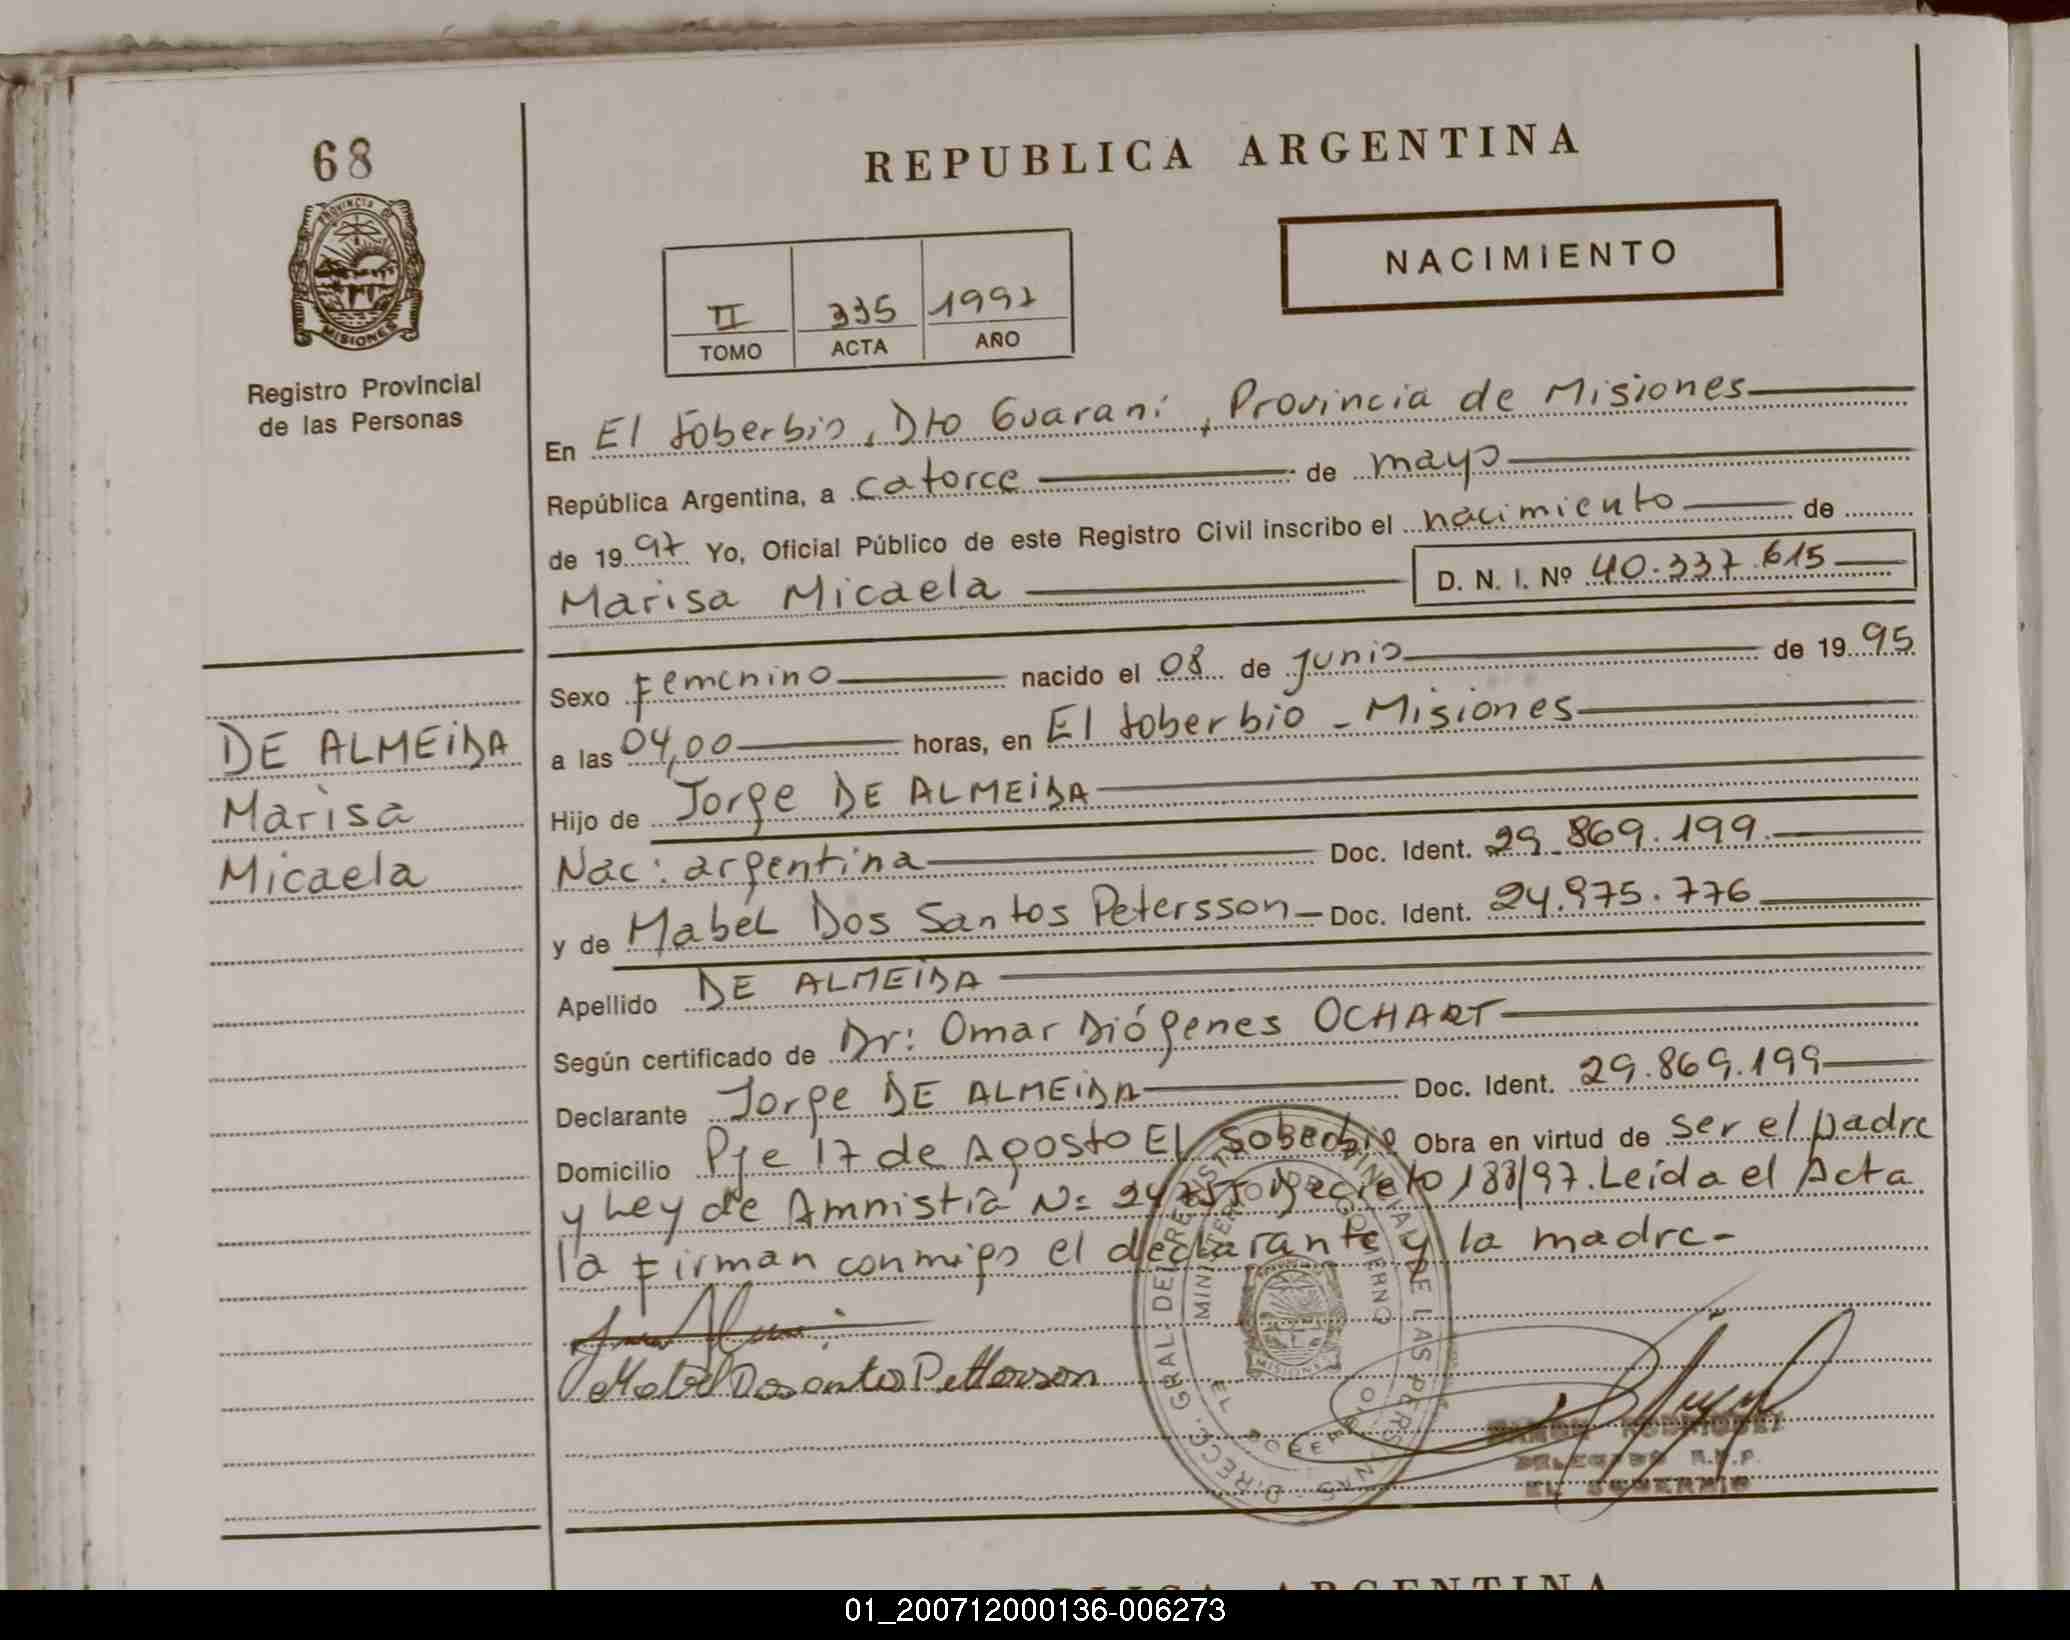 68
PROVINCIA DE
MISIONES
Registro Provincial
de las Personas
DE ALMEIDA
Marisa
Micaela
REPUBLICA ARGENTINA
NACIMIENTO
II 335 1997
TOMO ACTA AÑO
En El Soberbio, Dto Guaraní, Provincia de Misiones
República Argentina, a catorce de mayo
de 1997 Yo, Oficial Público de este Registro Civil inscribo el nacimiento de
Marisa Micaela D. N. I. Nº 40.337.615
Sexo Femenino nacido el 08 de Junio de 1995
a las 04,00 horas, en El Soberbio - Misiones
Hijo de Jorge DE ALMEIDA
Nac: argentina Doc. Ident. 29.869.199
y de Mabel Dos Santos Petersson Doc. Ident. 24.975.776
Apellido DE ALMEIDA
Según certificado de Dr: Omar Diógenes OCHART
Declarante Jorge DE ALMEIDA Doc. Ident. 29.869.199
Domicilio Pje 17 de Agosto El Soberbio Obra en virtud de ser el padre
y Ley de Amnistía Nº 24755 Decreto 188/97. Leída el Acta
la Firman conmigo el declarante y la madre-
DIRECC. GRAL. DEL REGISTRO PROVINCIAL DE LAS PERSONAS
MINISTERIO DE GOBIERNO
MISIONES
EL SOBERBIO
RODRIGUEZ
DELEGADO R.P.P.
EL SOBERBIO
REPUBLICA ARGENTINA
01_200712000136-006273